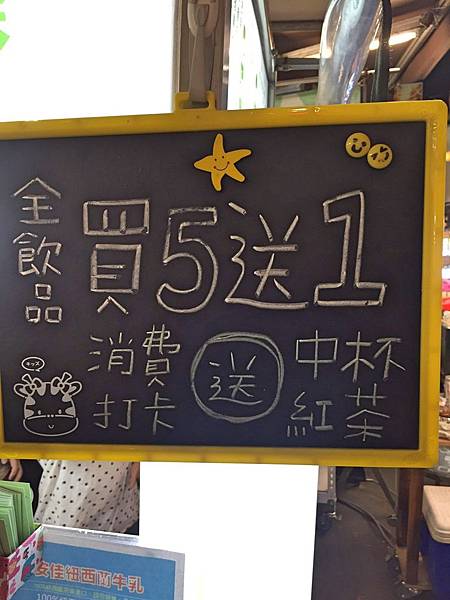 全飲品
買5送1
消費
打卡
送
中杯
紅茶
安佳紐西蘭牛乳
100%